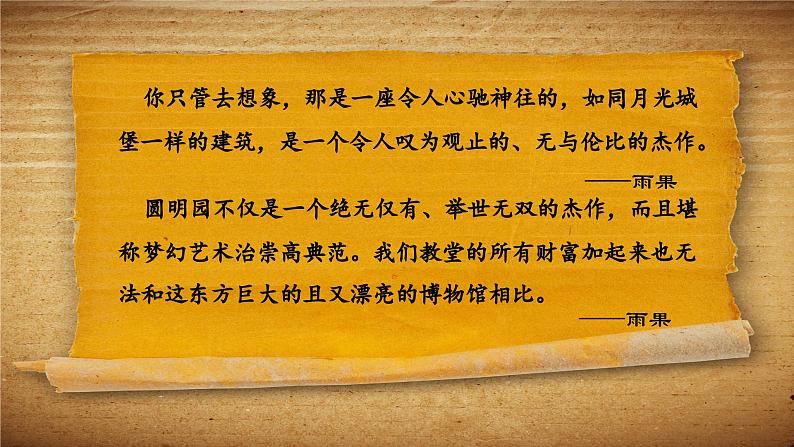 你只管去想象，那是一座令人心驰神往的，如同月光城
堡一样的建筑，是一个令人叹为观止的、无与伦比的杰作。
——雨果
圆明园不仅是一个绝无仅有、举世无双的杰作，而且堪
称梦幻艺术治崇高典范。我们教堂的所有财富加起来也无
法和这东方巨大的且又漂亮的博物馆相比。
——雨果